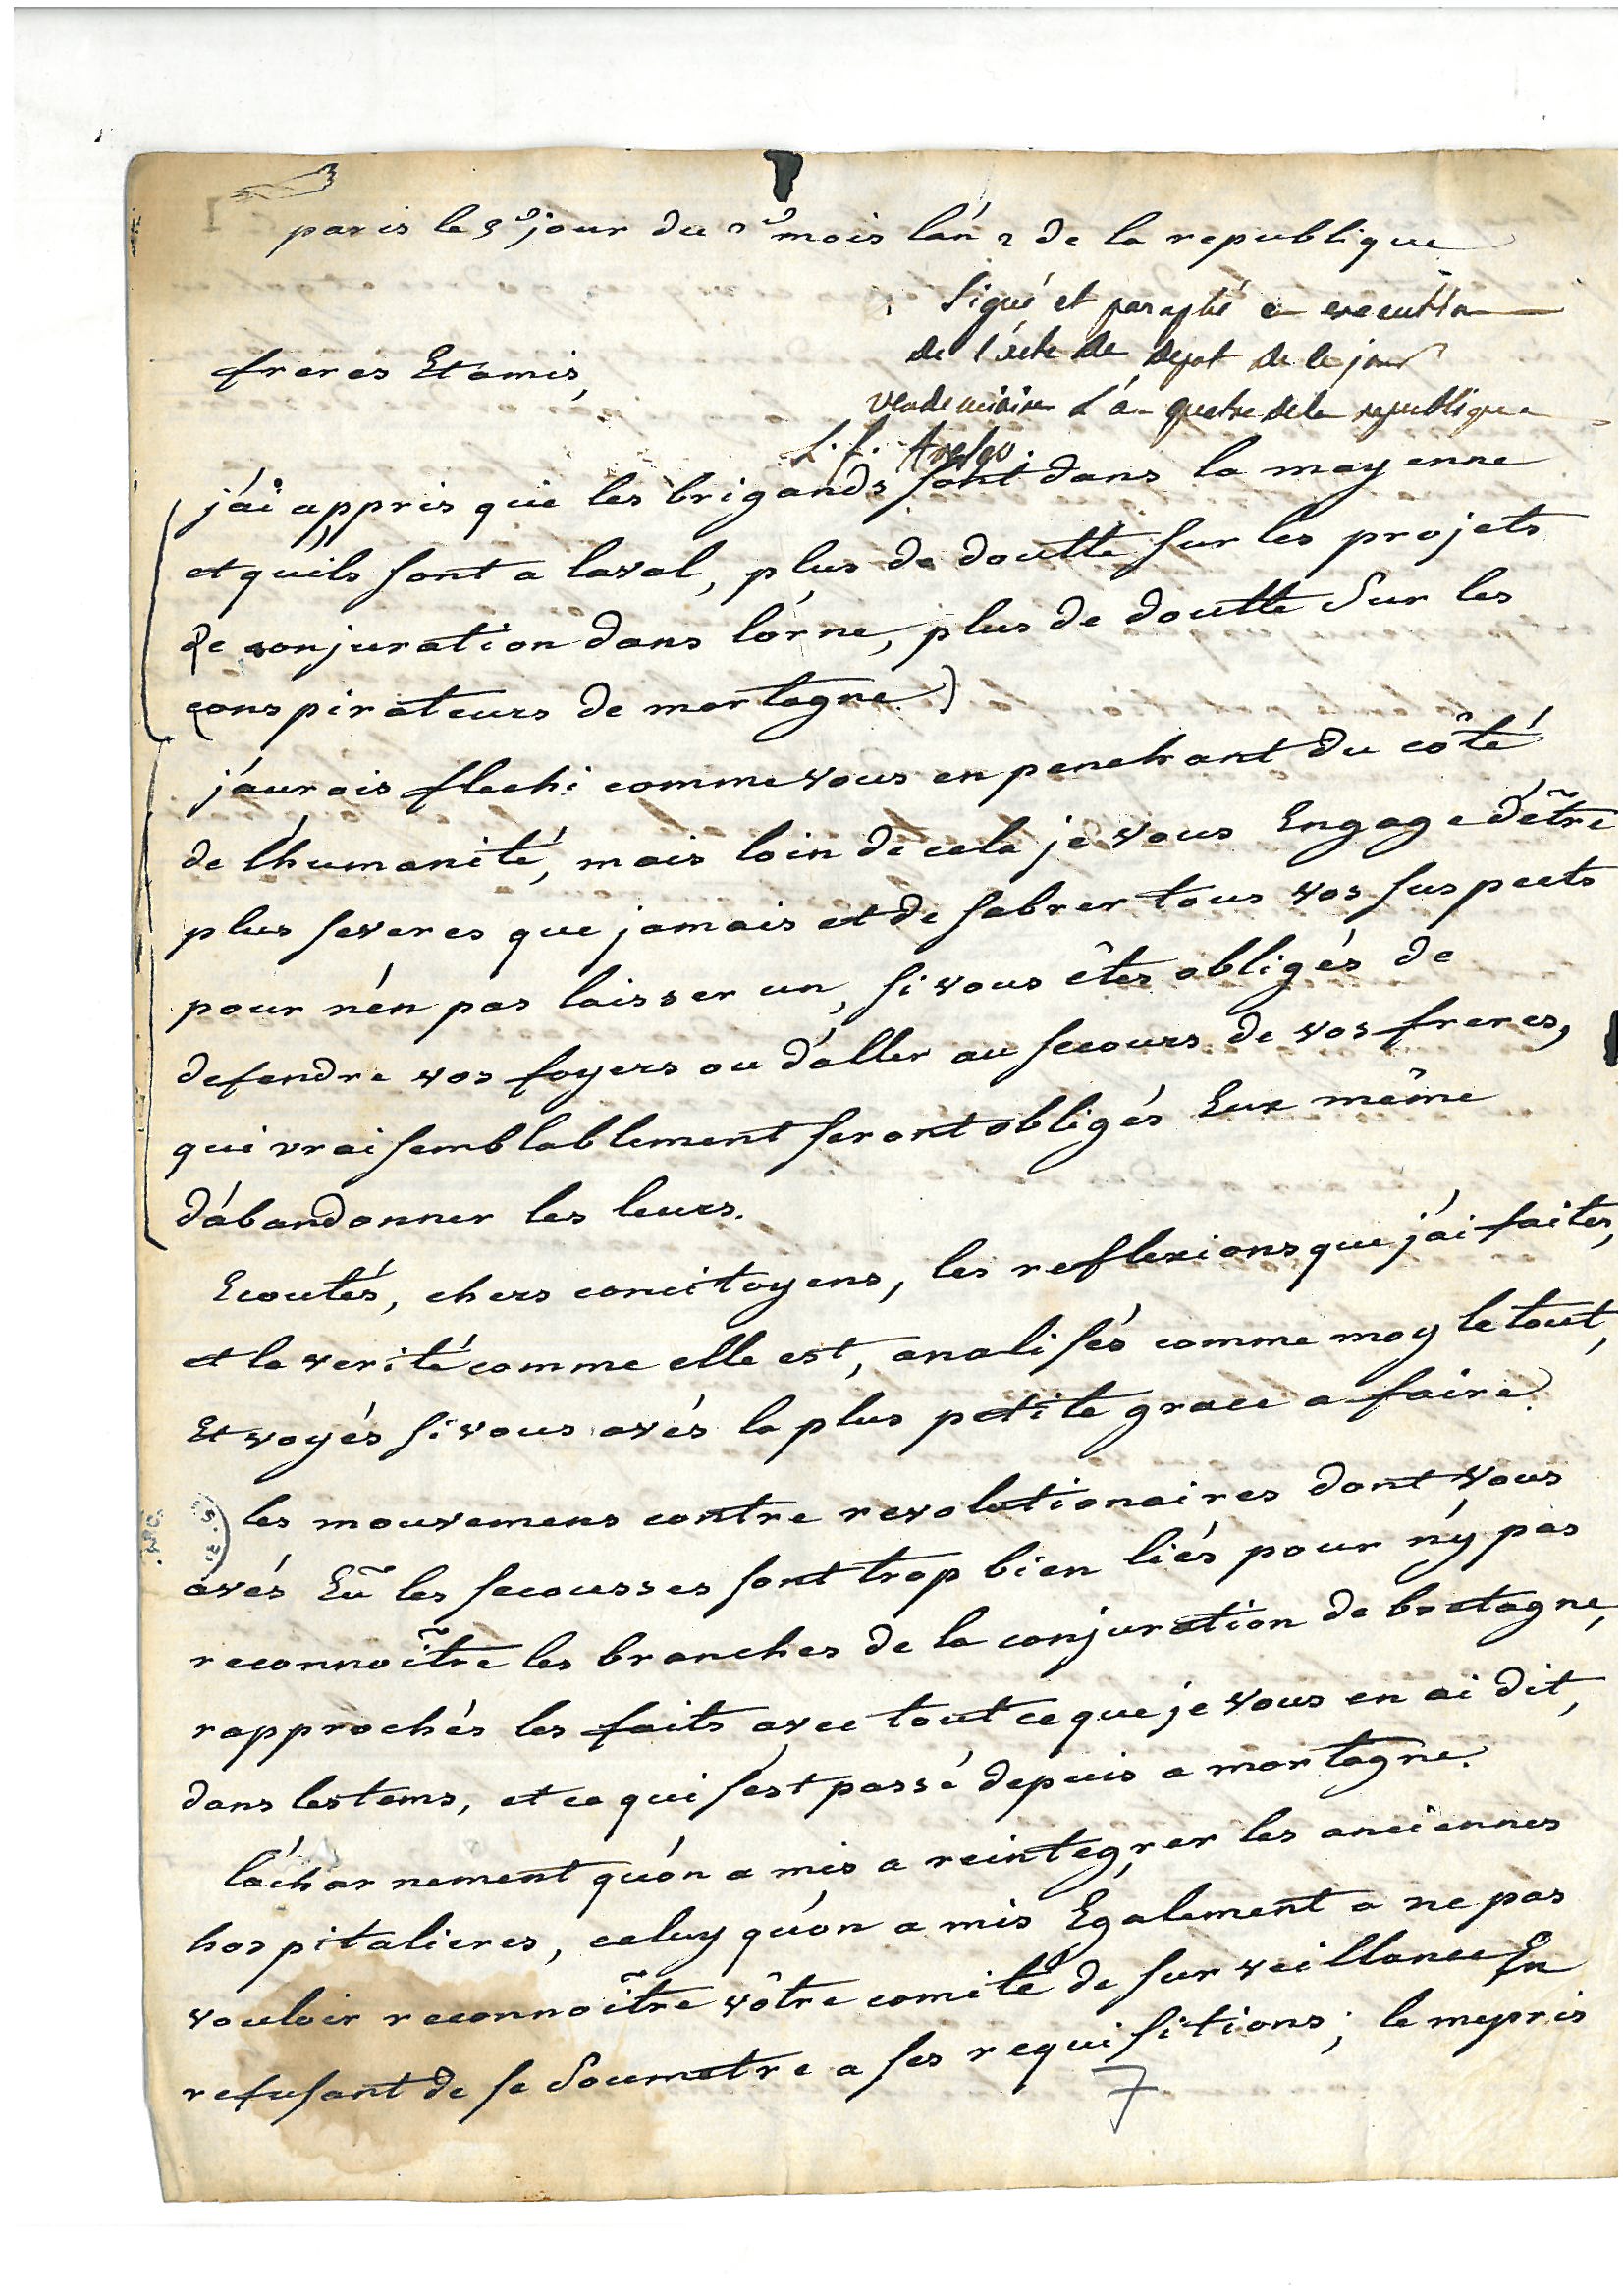 paris le 5e jour du 2e mois l'an 2 de la republique
Signé et paraphé en execution
de l'acte de depot de le jour
vendemiaire L'an quatre de la republique
freres Et amis,
j'ai appris que les brigands sont dans la mayenne
et qu'ils sont a laval, plus de doutte sur les projets
de conjuration dans l'orne, plus de doutte Sur les
conspirateurs de mortagne.)
j'aurois flechi comme vous en penchant du côté
de l'humanité, mais loin de cela je vous Engage d'être
plus severes que jamais et de sabrer tous vos suspects
pour n'en pas laisser un, si vous êtes obligés de
defendre vos foyers ou d'aller au secours de vos freres,
qui vraisemblablement seront obligés Eux même
d'abandonner les leurs.
Ecoutés, chers concitoyens, les reflexions que j'ai faites,
et la verité comme elle est, analisés comme moy le tout,
Et voyés si vous avés la plus petite grace a faire.
les mouvemens contre revolutionaires dont vous
avés Eu les secousses sont trop bien liés pour n'y pas
reconnoître les branches de la conjuration de bretagne,
rapprochés les faits avec tout ce que je vous en ai dit,
dans les tems, et ce qui s'est passé depuis a mortagne.
l'acharnement qu'on a mis a reintegrer les anciennes
hospitalieres, celuy qu'on a mis Egalement a ne pas
vouloir reconnoître vôtre comité de surveillance En
refusant de se Soumetre a ses requisitions; le mepris
7